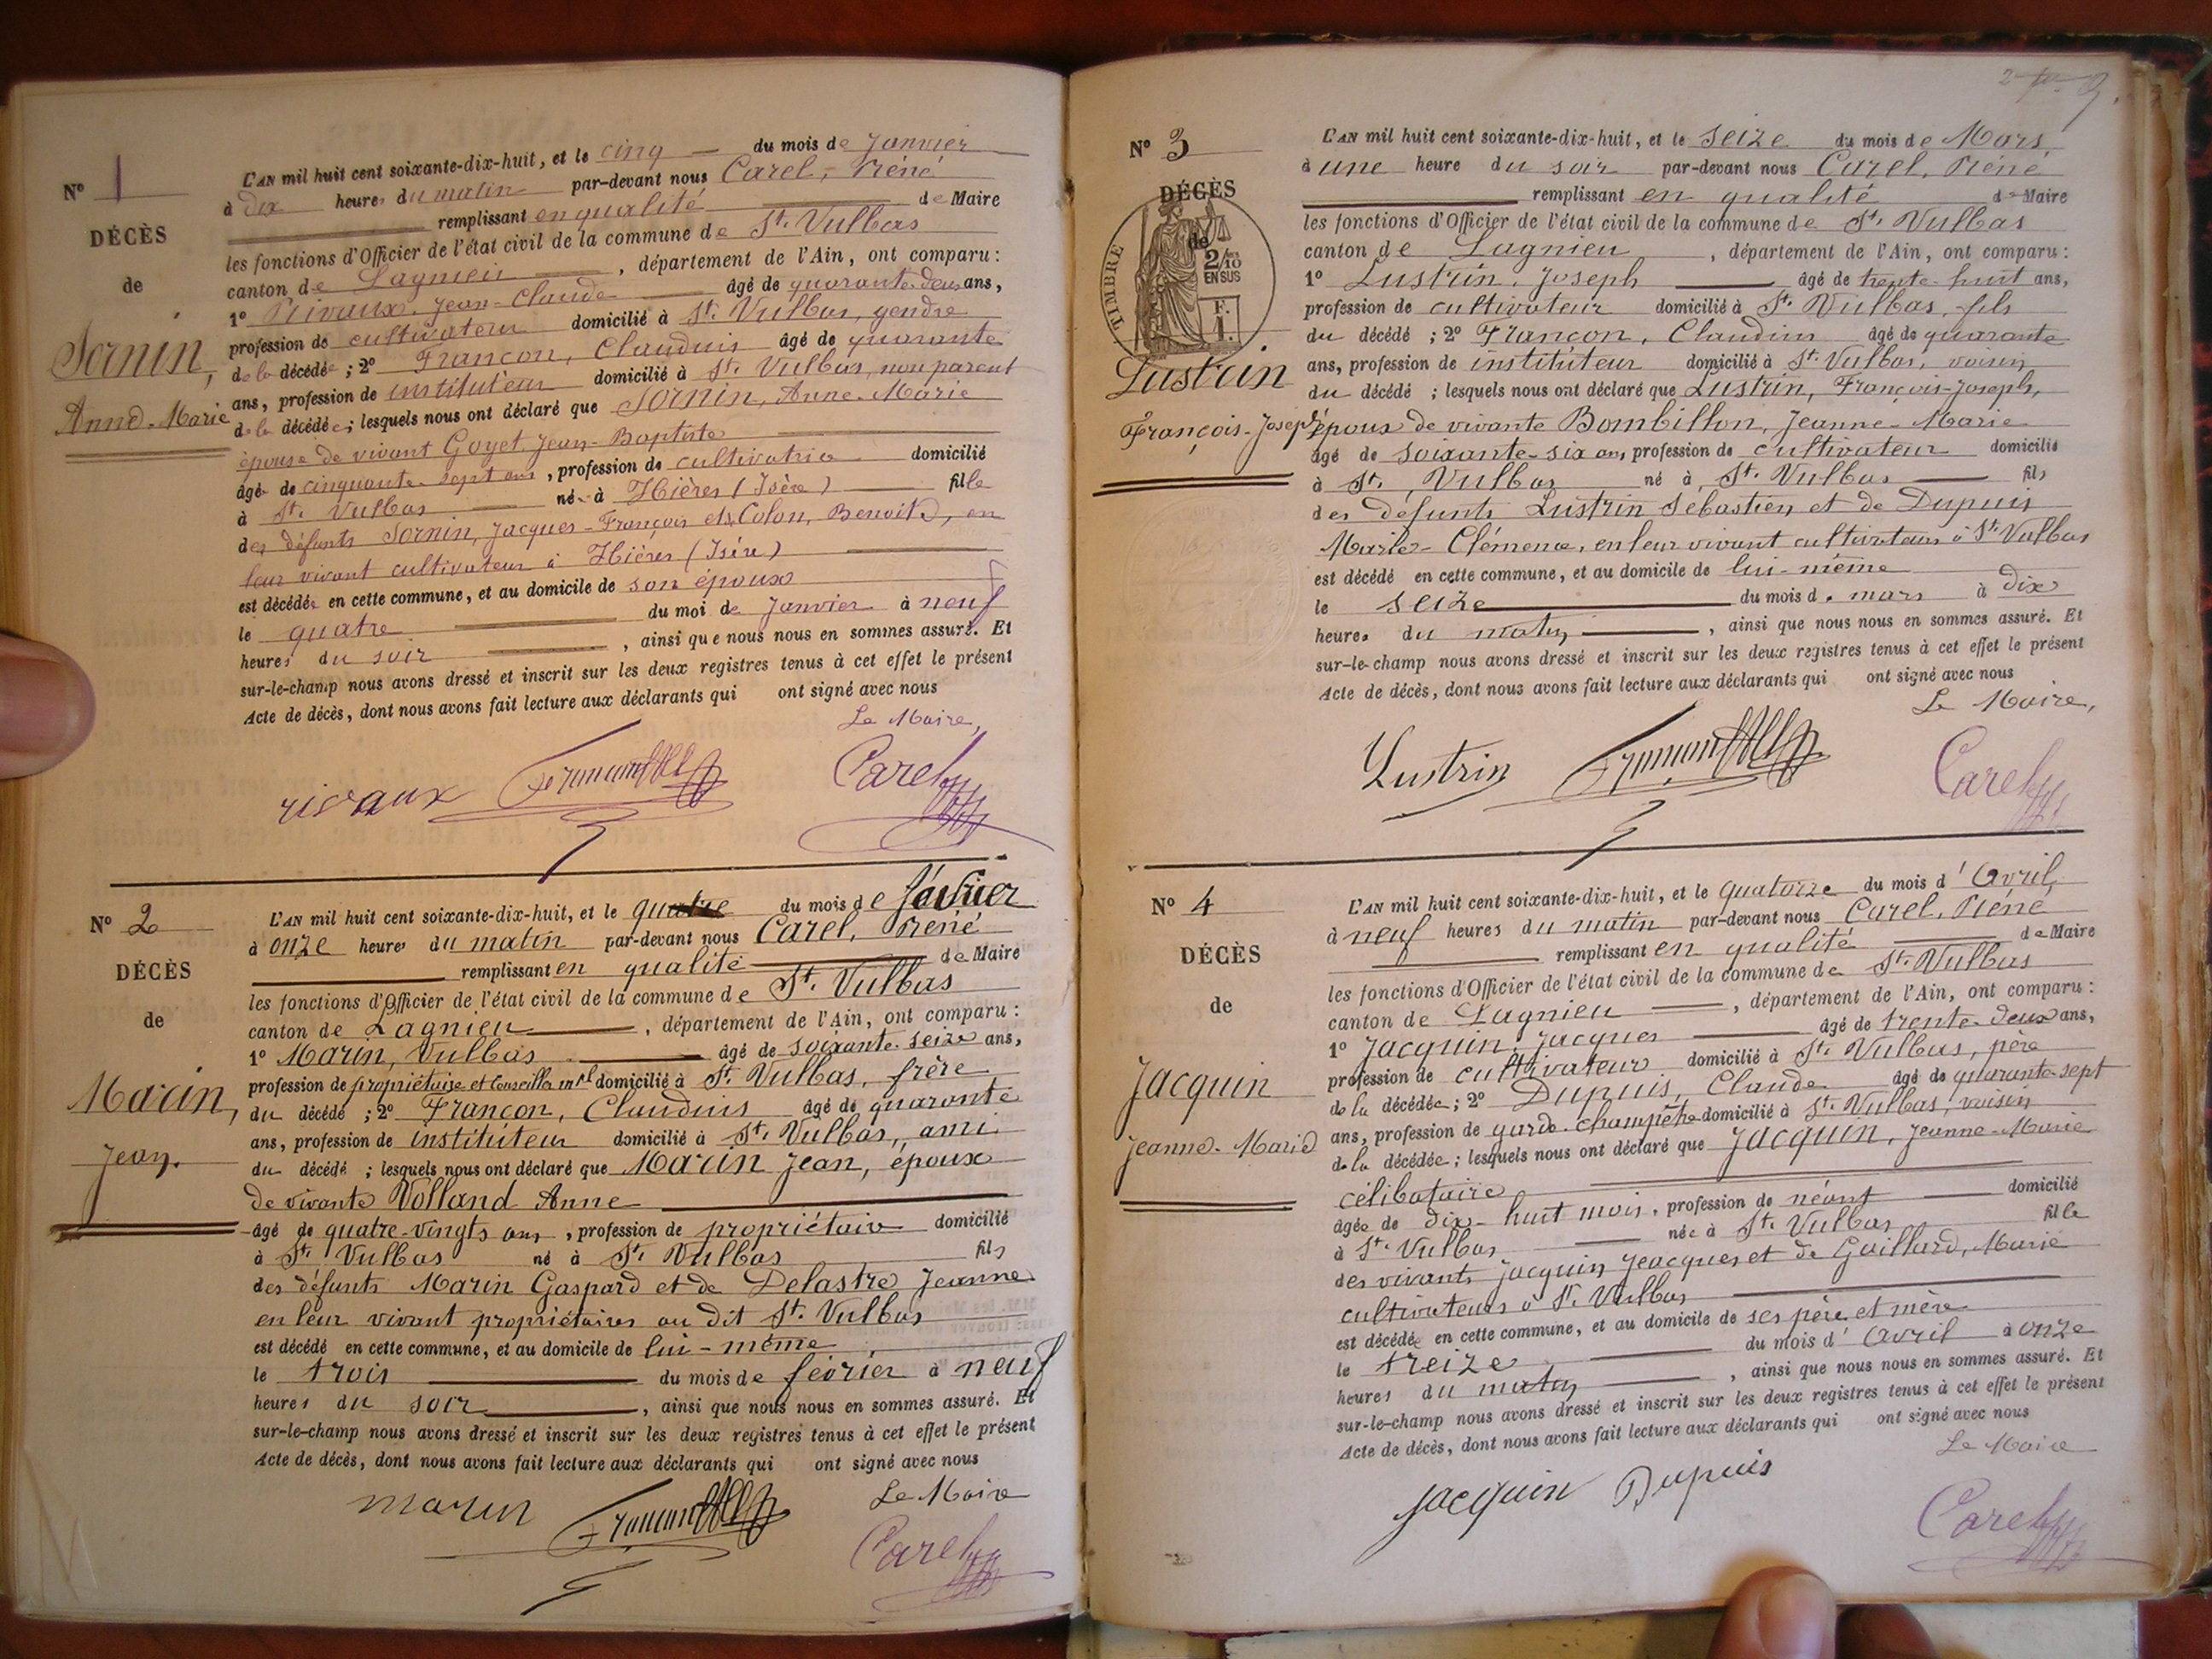 N° 1
DÉCÈS
de
Sornin,
Anne-Marie
L'AN mil huit cent soixante-dix-huit, et le cinq du mois de Janvier
à dix heures du matin par-devant nous Carel, Réné
remplissant en qualité de Maire
les fonctions d'Officier de l'état civil de la commune de St. Vulbas
canton de Lagnieu, département de l'Ain, ont comparu :
1° Rivaux, Jean-Claude âgé de quarante-deux ans,
profession de cultivateur domicilié à St. Vulbas, gendre
de la décédée ; 2° Françon, Claudius âgé de quarante
ans, profession de instituteur domicilié à St. Vulbas, non parent
de la décédée ; lesquels nous ont déclaré que Sornin, Anne-Marie
épouse de vivant Goyet Jean-Baptiste
âgée de cinquante-sept ans, profession de cultivatrice domicilié
à St. Vulbas née à Hières (Isère) fille
des défunts Sornin, Jacques-François et Colon, Benoite, en
leur vivant cultivateur à Hières (Isère)
est décédée en cette commune, et au domicile de son époux
le quatre du moi de Janvier à neuf
heures du soir, ainsi que nous nous en sommes assuré. Et
sur-le-champ nous avons dressé et inscrit sur les deux registres tenus à cet effet le présent
Acte de décès, dont nous avons fait lecture aux déclarants qui ont signé avec nous
Le Maire,
rivaux Françon Carel
N° 2
DÉCÈS
de
Marin,
Jean.
L'AN mil huit cent soixante-dix-huit, et le quatre du mois de février
à onze heures du matin par-devant nous Carel, Réné
remplissant en qualité de Maire
les fonctions d'Officier de l'état civil de la commune de St. Vulbas
canton de Lagnieu, département de l'Ain, ont comparu :
1° Marin, Vulbas âgé de soixante-seize ans,
profession de propriétaire et Conseiller mpl domicilié à St. Vulbas, frère
du décédé ; 2° Françon, Claudius âgé de quarante
ans, profession de instituteur domicilié à St. Vulbas, ami
du décédé ; lesquels nous ont déclaré que Marin Jean, époux
de vivante Volland Anne
âgé de quatre-vingts ans, profession de propriétaire domicilié
à St. Vulbas né à St. Vulbas fils
des défunts Marin Gaspard et de Delastre Jeanne
en leur vivant propriétaires au dit St. Vulbas
est décédé en cette commune, et au domicile de lui-même
le trois du mois de février à neuf
heures du soir, ainsi que nous nous en sommes assuré. Et
sur-le-champ nous avons dressé et inscrit sur les deux registres tenus à cet effet le présent
Acte de décès, dont nous avons fait lecture aux déclarants qui ont signé avec nous
Le Maire
marin Françon Carel
N° 3
DÉCÈS
de
TIMBRE
2/10
EN SUS
F.
1.
Lustrin
François-Joseph
L'AN mil huit cent soixante-dix-huit, et le seize du mois de Mars
à une heure du soir par-devant nous Carel, Réné
remplissant en qualité de Maire
les fonctions d'Officier de l'état civil de la commune de St. Vulbas
canton de Lagnieu, département de l'Ain, ont comparu :
1° Lustrin, Joseph âgé de trente-huit ans,
profession de cultivateur domicilié à St. Vulbas, fils
du décédé ; 2° Françon, Claudius âgé de quarante
ans, profession de instituteur domicilié à St. Vulbas, voisin
du décédé ; lesquels nous ont déclaré que Lustrin, François-Joseph,
époux de vivante Bombillon, Jeanne-Marie
âgé de soixante-six ans, profession de cultivateur domicilié
à St. Vulbas né à St. Vulbas fils
des défunts Lustrin Sébastien et de Dupuis
Marie-Clémence, en leur vivant cultivateurs à St. Vulbas
est décédé en cette commune, et au domicile de lui-même
le seize du mois de mars à dix
heures du matin, ainsi que nous nous en sommes assuré. Et
sur-le-champ nous avons dressé et inscrit sur les deux registres tenus à cet effet le présent
Acte de décès, dont nous avons fait lecture aux déclarants qui ont signé avec nous
Le Maire,
Lustrin Françon Carel
N° 4
DÉCÈS
de
Jacquin
Jeanne-Marie
L'AN mil huit cent soixante-dix-huit, et le quatorze du mois d'Avril
à neuf heures du matin par-devant nous Carel, Réné
remplissant en qualité de Maire
les fonctions d'Officier de l'état civil de la commune de St. Vulbas
canton de Lagnieu, département de l'Ain, ont comparu :
1° Jacquin, Jacques âgé de trente-deux ans,
profession de cultivateur domicilié à St. Vulbas, père
de la décédée ; 2° Dupuis, Claude âgé de quarante-sept
ans, profession de garde-champêtre domicilié à St. Vulbas, voisin
de la décédée ; lesquels nous ont déclaré que Jacquin, Jeanne-Marie
célibataire
âgée de dix-huit mois, profession de néant domicilié
à St. Vulbas née à St. Vulbas fille
des vivants Jacquin Jeacques et de Gaillard, Marie
cultivateurs à St. Vulbas
est décédée en cette commune, et au domicile de ses père et mère
le treize du mois d'Avril à onze
heures du matin, ainsi que nous nous en sommes assuré. Et
sur-le-champ nous avons dressé et inscrit sur les deux registres tenus à cet effet le présent
Acte de décès, dont nous avons fait lecture aux déclarants qui ont signé avec nous
Le Maire
jacquin Dupuis Carel